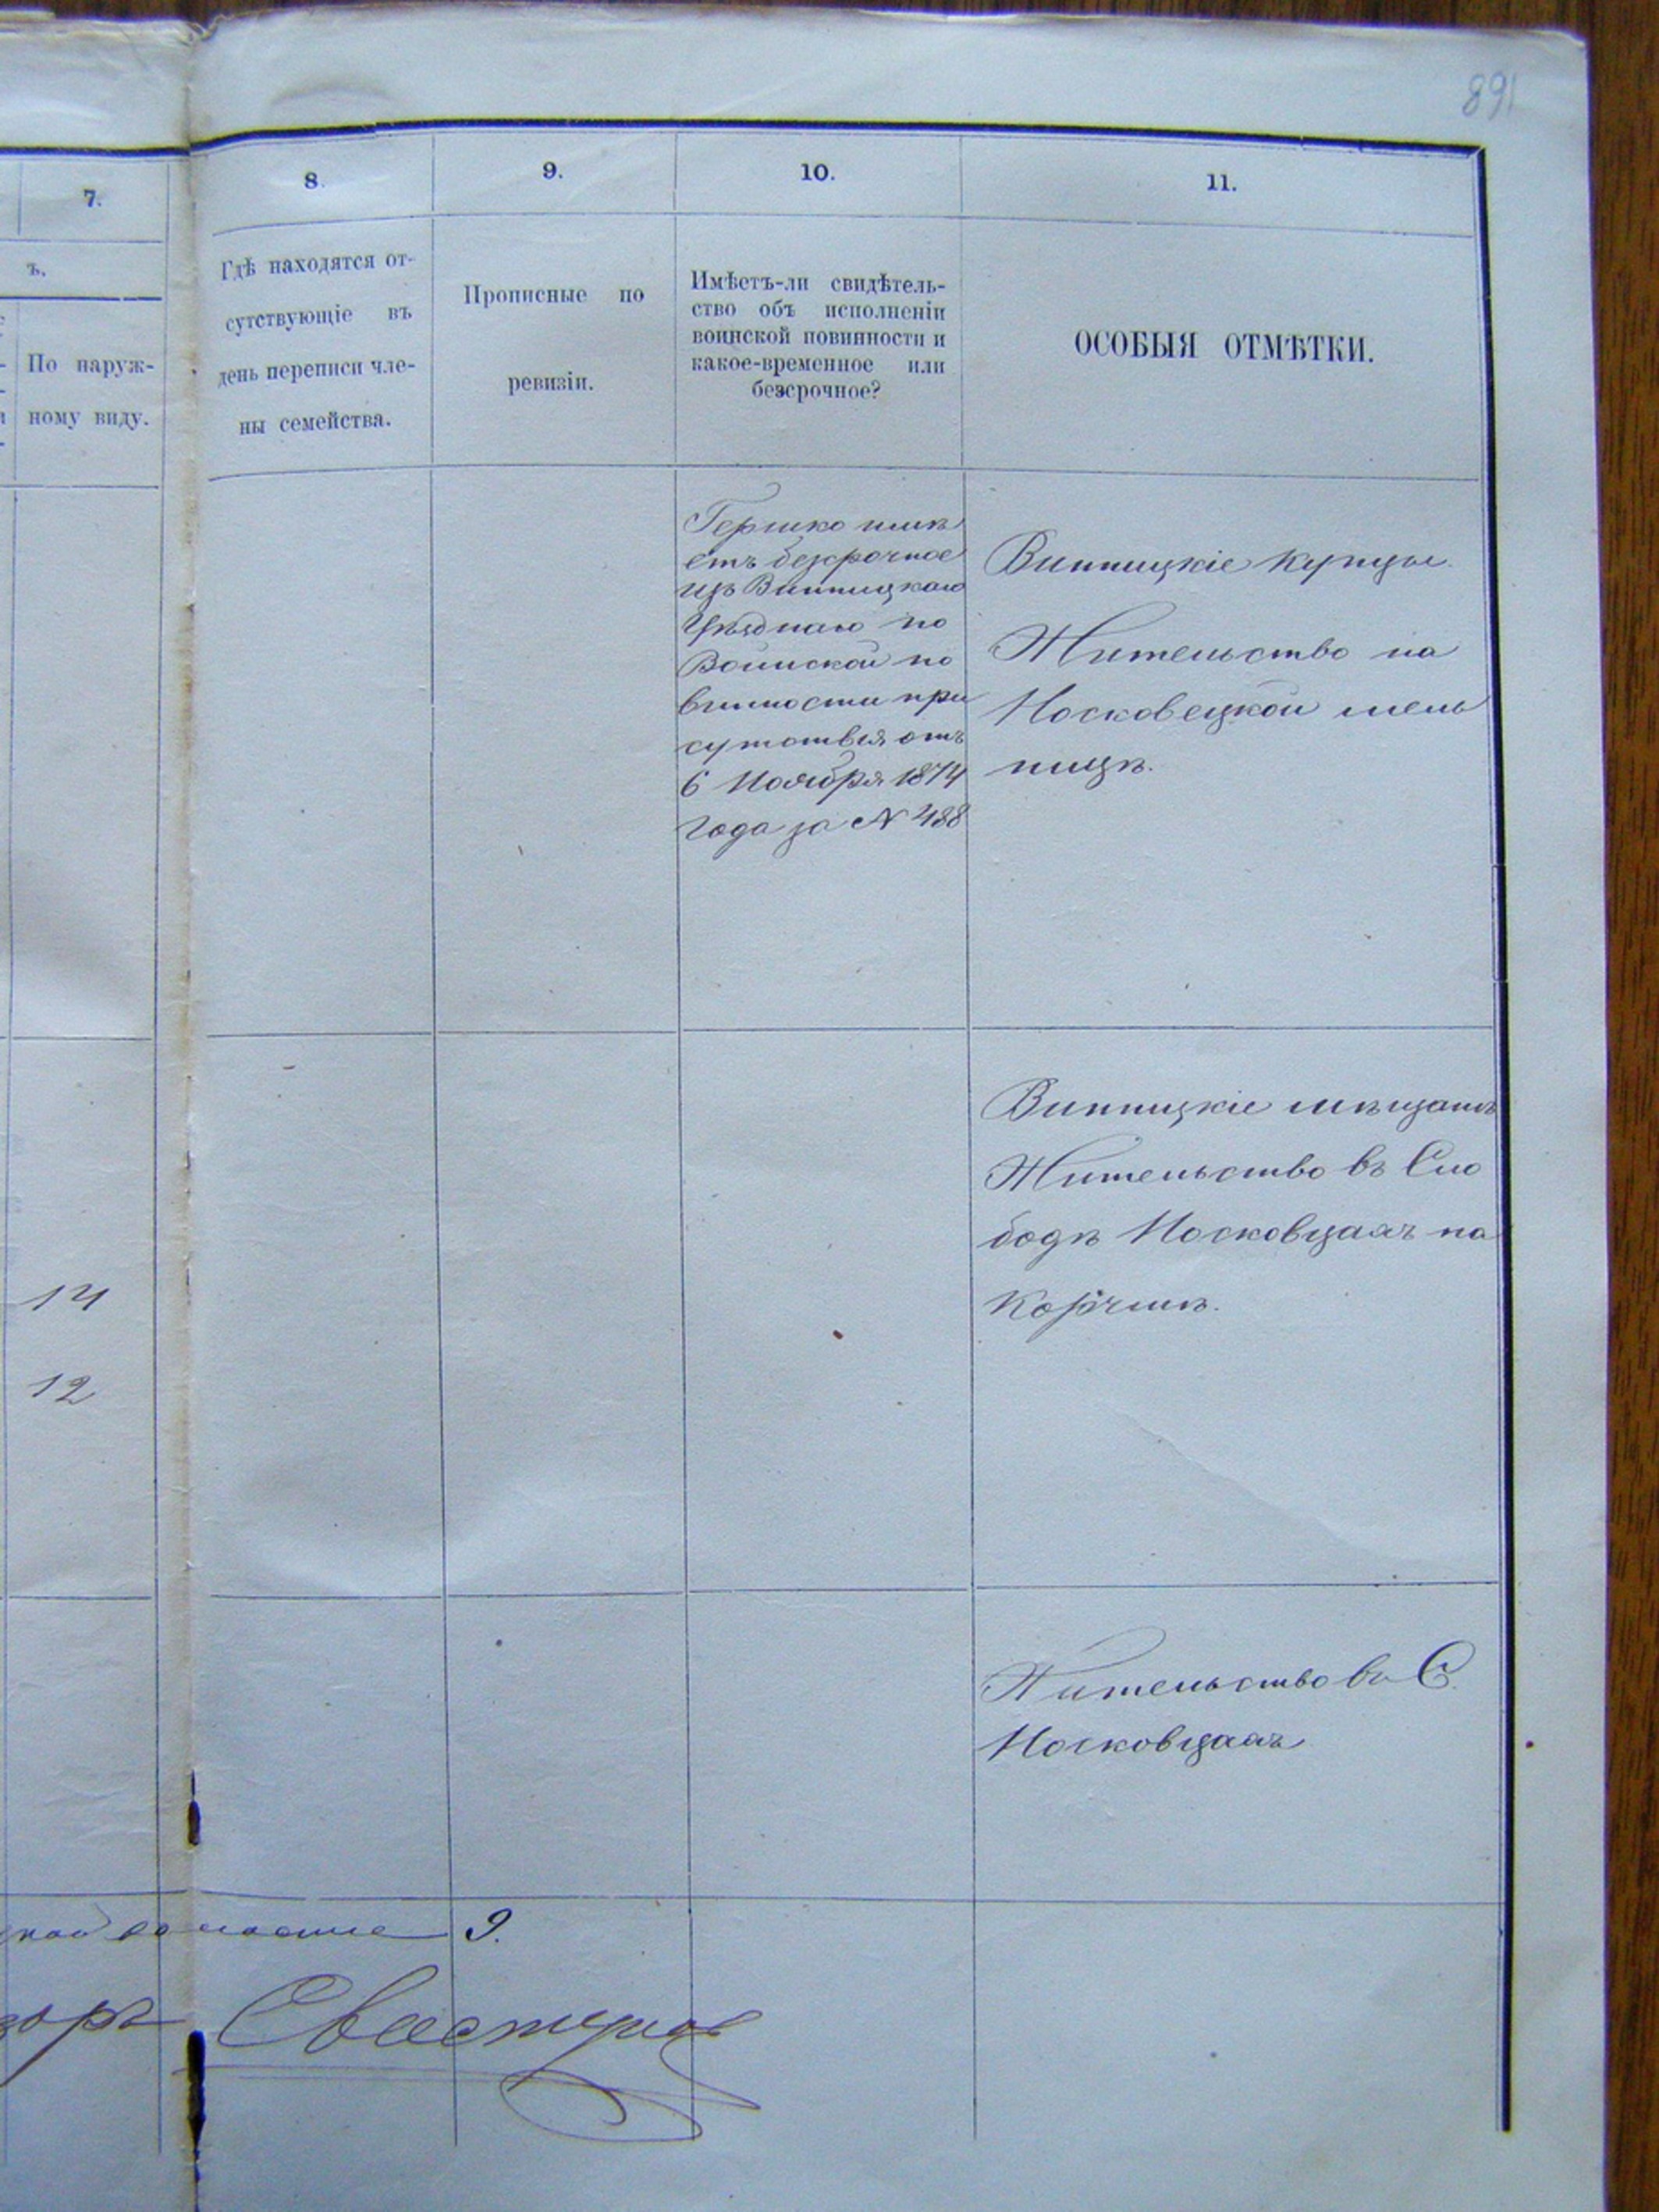 891
7.
8.
9.
10.
11.
ъ.
По наруж-
ному виду.
Гдѣ находятся от-
сутствующіе въ
день переписи чле-
ны семейства.
Прописные по
ревизіи.
Имѣетъ-ли свидѣтель-
ство объ исполненіи
воинской повинности и
какое-временное или
безсрочное?
ОСОБЫЯ ОТМѢТКИ.
Гершко имѣ
етъ безсрочное
изъ Винницкаго
Уѣзднаго по
Воинской по
винности при
сутствія отъ
6 Ноября 1874
года за № 488
Винницкіе купцы.
Жительство на
Московецкой мель
ницѣ.
14
12
Винницкіе мѣщане
Жительство въ Сло
бодѣ Московцахъ на
Корчмѣ.
Жительство въ С.
Московцахъ
9.